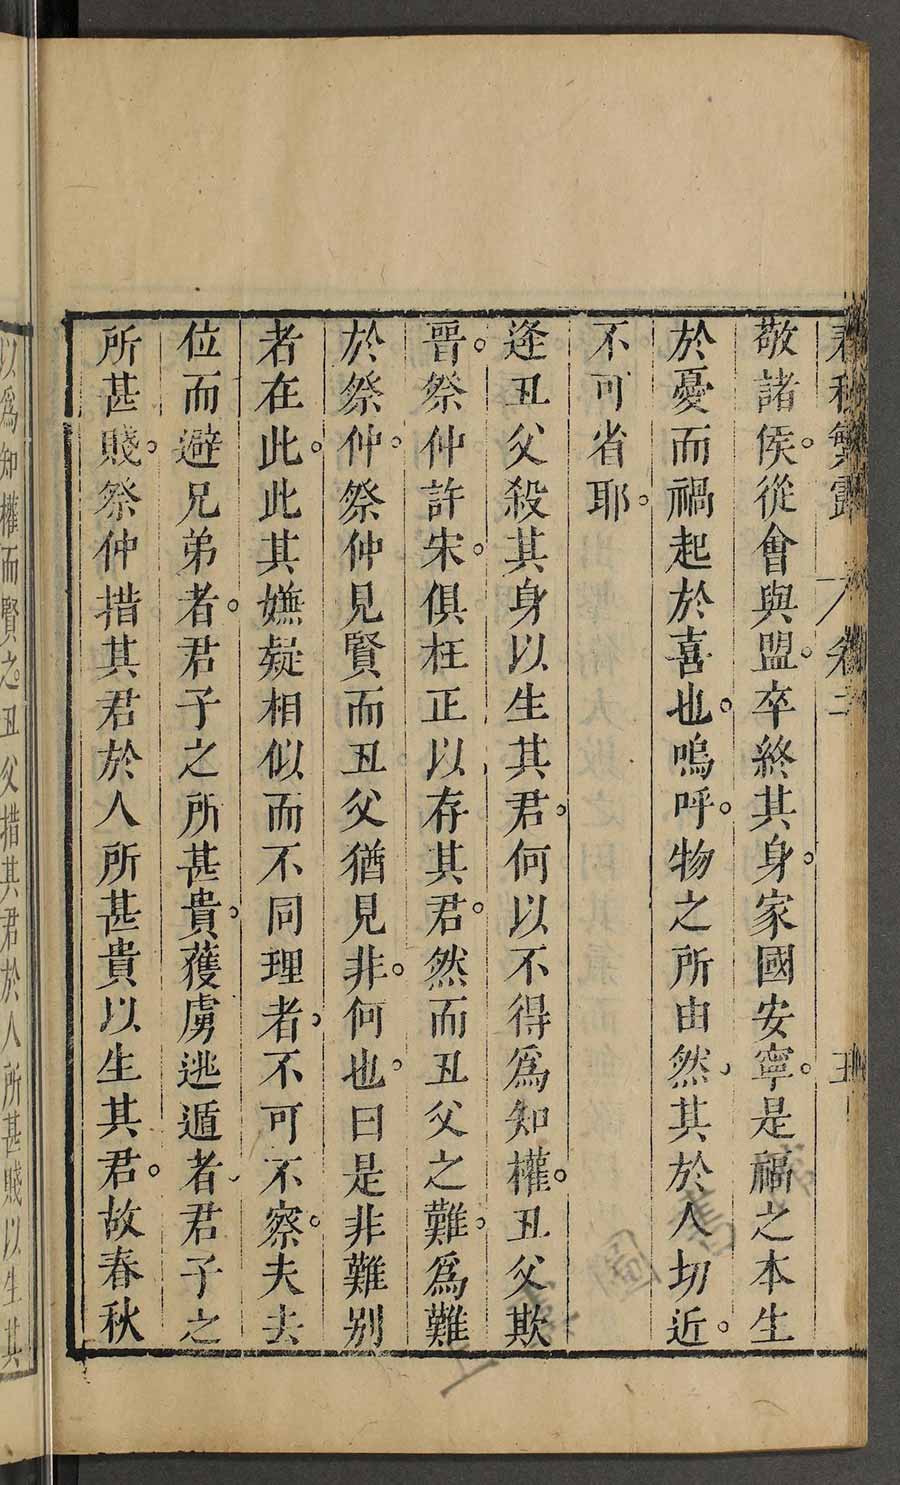 春秋繁露 卷二 五
敬諸侯。從會與盟。卒終其身。家國安寧。是福之本生
於憂而禍起於喜也。嗚呼。物之所由然、其於人切近。
不可省耶。
逢丑父殺其身以生其君。何以不得爲知權。丑父欺
晉。祭仲許宋。俱枉正以存其君。然而丑父之難。爲難
於祭仲。祭仲見賢而丑父猶見非。何也。曰是非難别
者在此。此其嫌疑相似而不同理者、不可不察。夫去
位而避兄弟者。君子之所甚貴。獲虜逃遁者、君子之
所甚賤。祭仲措其君於人所甚貴以生其君。故春秋
以爲知權而賢之。丑父措其君於人所甚賤以生其